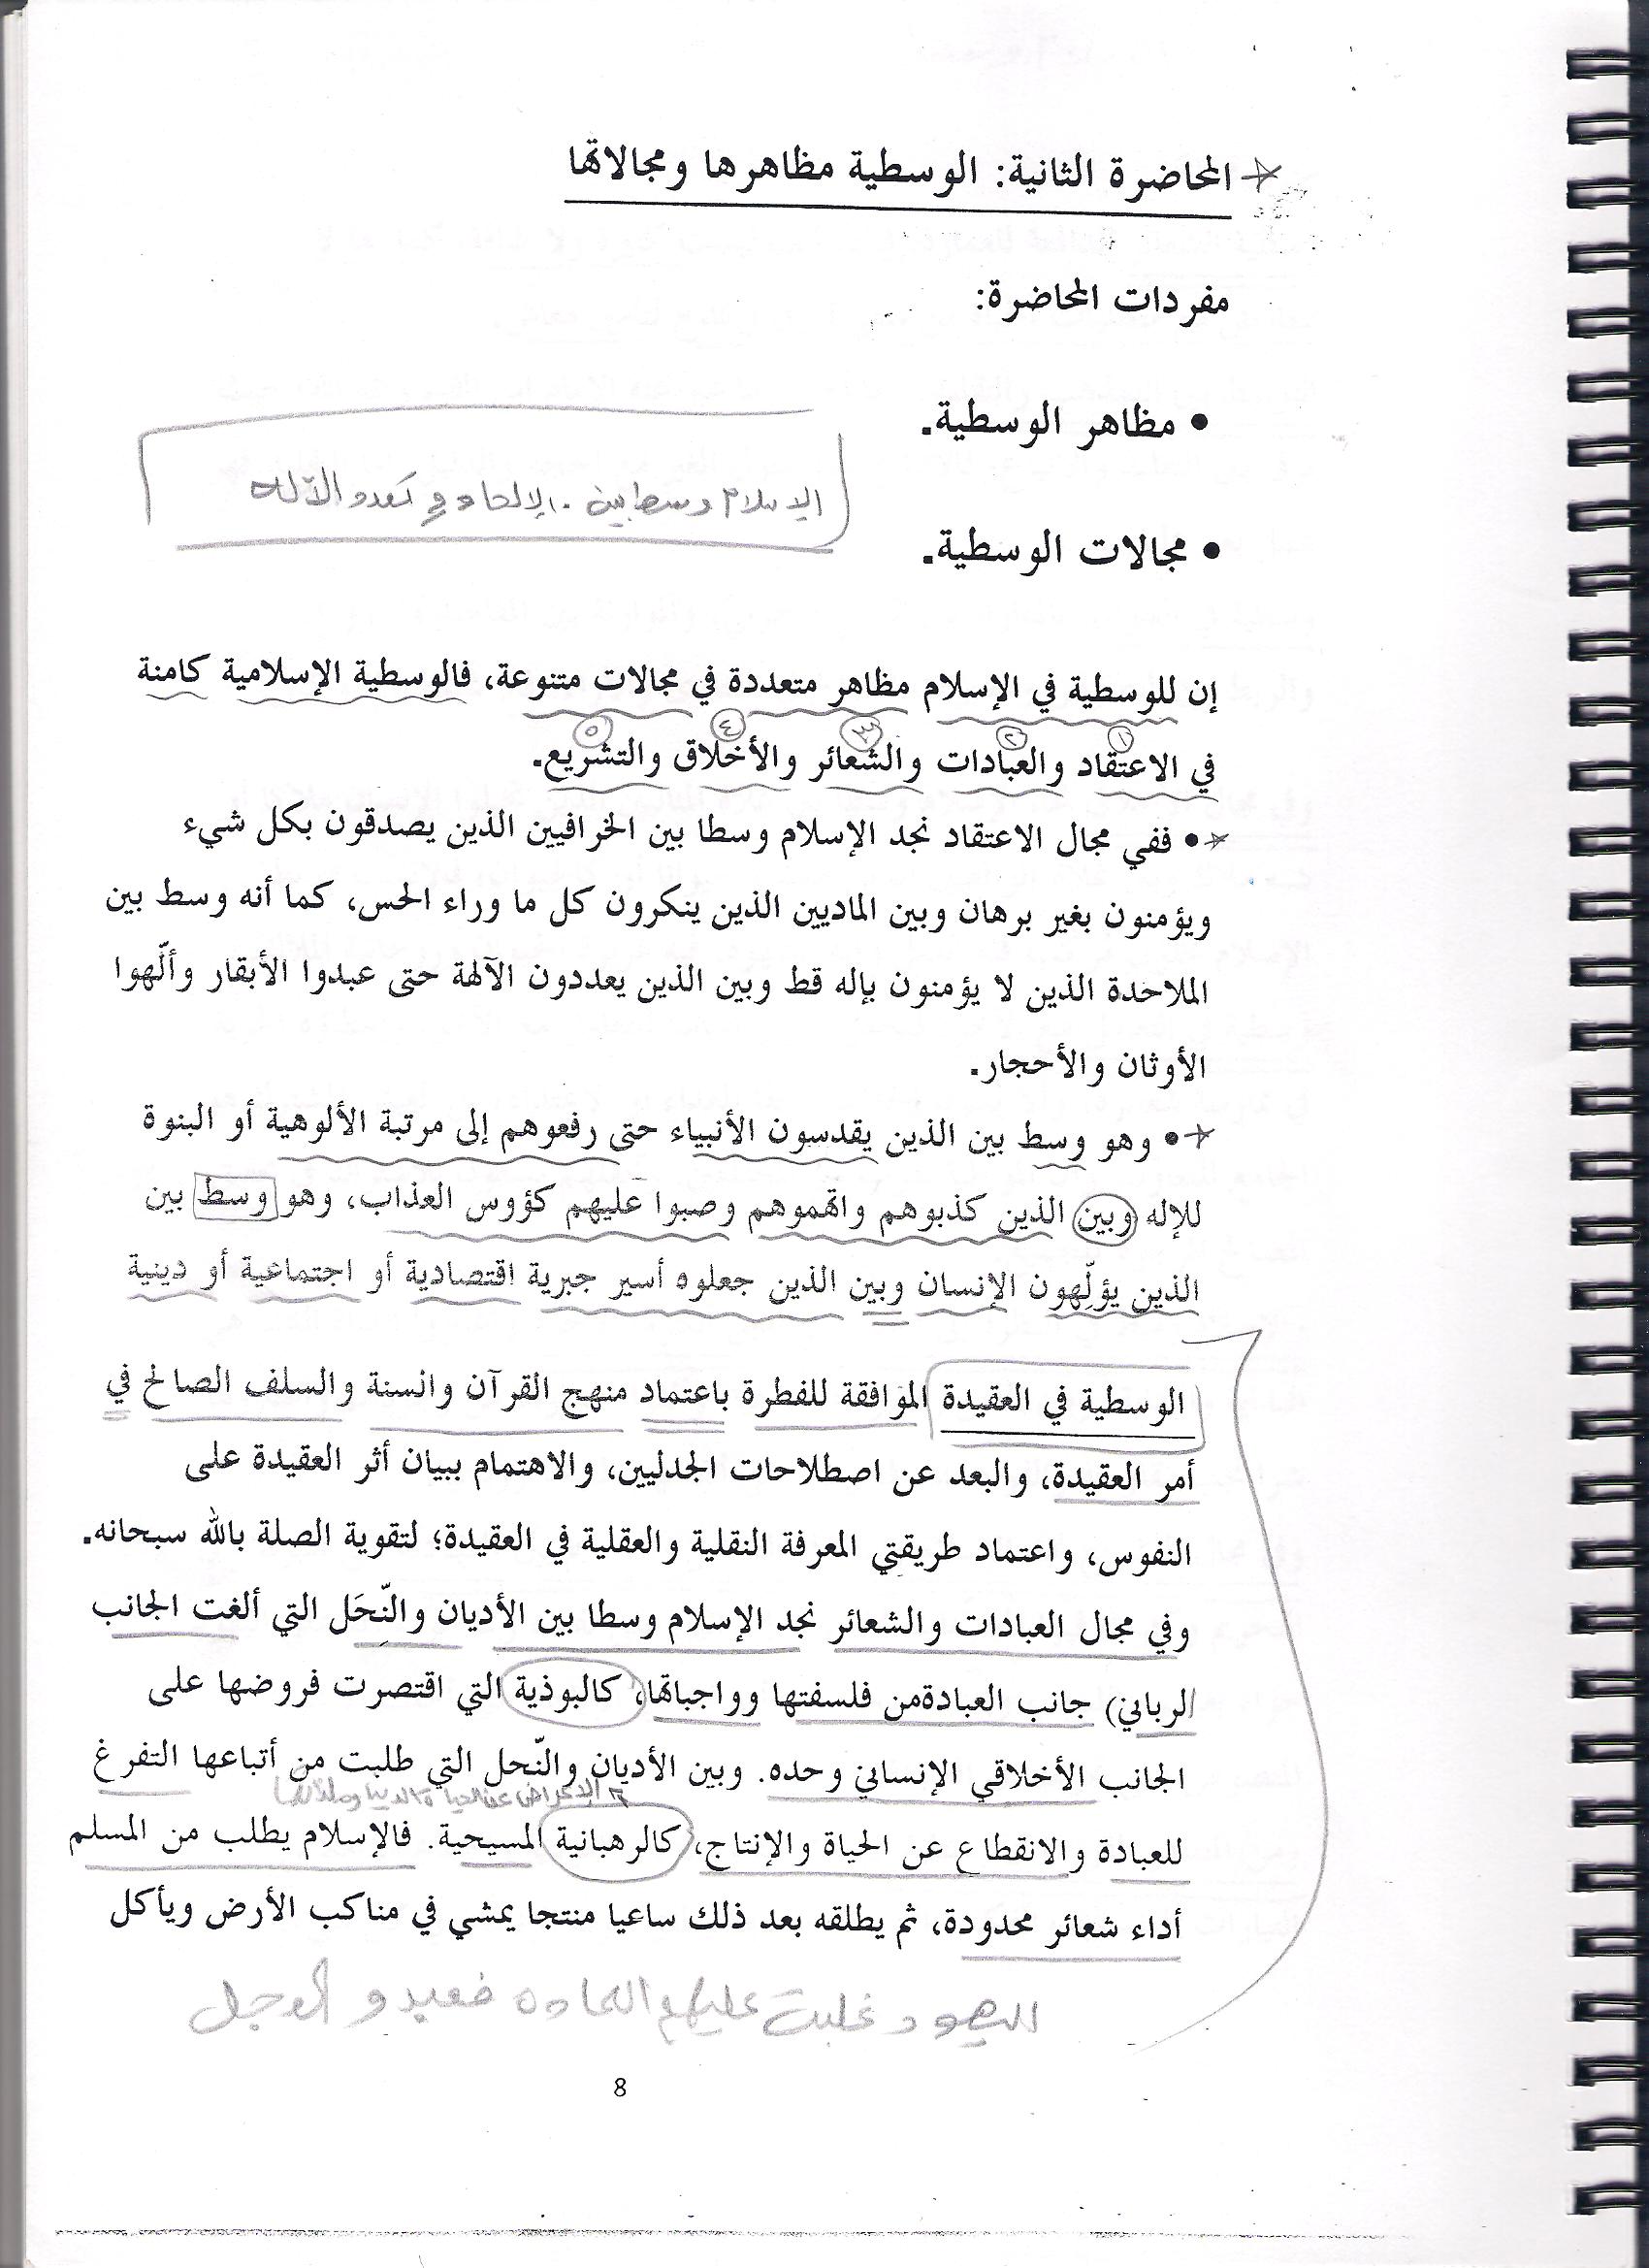 المحاضرة الثانية: الوسطية مظاهرها ومجالاتها
مفردات المحاضرة:
• مظاهر الوسطية.
الإسلام وسط بين الإلحاد و تعدد الآلهة
• مجالات الوسطية.
إن للوسطية في الإسلام مظاهر متعددة في مجالات متنوعة، فالوسطية الإسلامية كامنة
١ ٢ ٣ ٤ ٥
في الاعتقاد والعبادات والشعائر والأخلاق والتشريع.
• ففي مجال الاعتقاد نجد الإسلام وسطا بين الخرافيين الذين يصدقون بكل شيء
ويؤمنون بغير برهان وبين الماديين الذين ينكرون كل ما وراء الحس، كما أنه وسط بين
الملاحدة الذين لا يؤمنون بإله قط وبين الذين يعددون الآلهة حتى عبدوا الأبقار وألّهوا
الأوثان والأحجار.
• وهو وسط بين الذين يقدسون الأنبياء حتى رفعوهم إلى مرتبة الألوهية أو البنوة
للإله وبين الذين كذبوهم واتهموهم وصبوا عليهم كؤوس العذاب، وهو وسط بين
الذين يؤلّهون الإنسان وبين الذين جعلوه أسير جبرية اقتصادية أو اجتماعية أو دينية
الوسطية في العقيدة الموافقة للفطرة باعتماد منهج القرآن والسنة والسلف الصالح في
أمر العقيدة، والبعد عن اصطلاحات الجدليين، والاهتمام ببيان أثر العقيدة على
النفوس، واعتماد طريقتي المعرفة النقلية والعقلية في العقيدة؛ لتقوية الصلة بالله سبحانه.
وفي مجال العبادات والشعائر نجد الإسلام وسطا بين الأديان والنّحَل التي ألغت الجانب
الرباني) جانب العبادةمن فلسفتها وواجباتها، كالبوذية التي اقتصرت فروضها على
الجانب الأخلاقي الإنساني وحده. وبين الأديان والنّحل التي طلبت من أتباعها التفرغ
الإعراض عن الحياة الدنيا وملذاتها
للعبادة والانقطاع عن الحياة والإنتاج، كالرهبانية المسيحية. فالإسلام يطلب من المسلم
أداء شعائر محدودة، ثم يطلقه بعد ذلك ساعيا منتجا يمشي في مناكب الأرض ويأكل
اليهود غلبت عليهم المادة فعبدو العجل
8